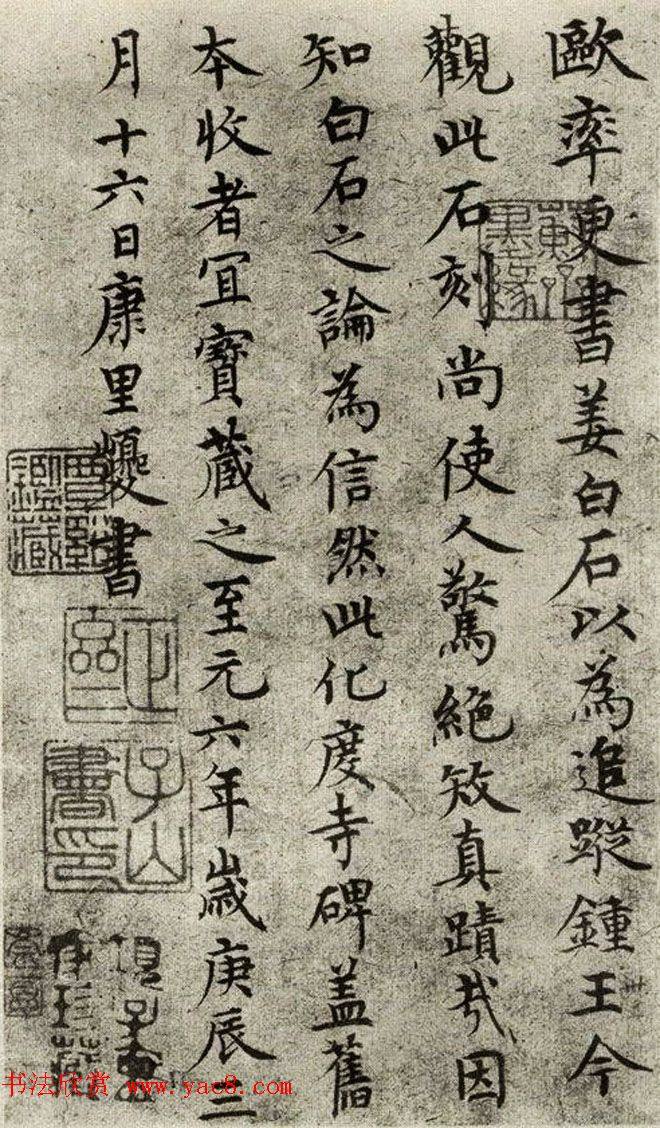 歐率更書姜白石以為追蹤鍾王今
觀此石刻尚使人驚絶矧真蹟哉因
知白石之論為信然此化度寺碑蓋舊
本收者宜寶藏之至元六年歲庚辰二
月十六日康里巙書
子山書印
項子京家珍藏
书法欣赏 www.yac8.com